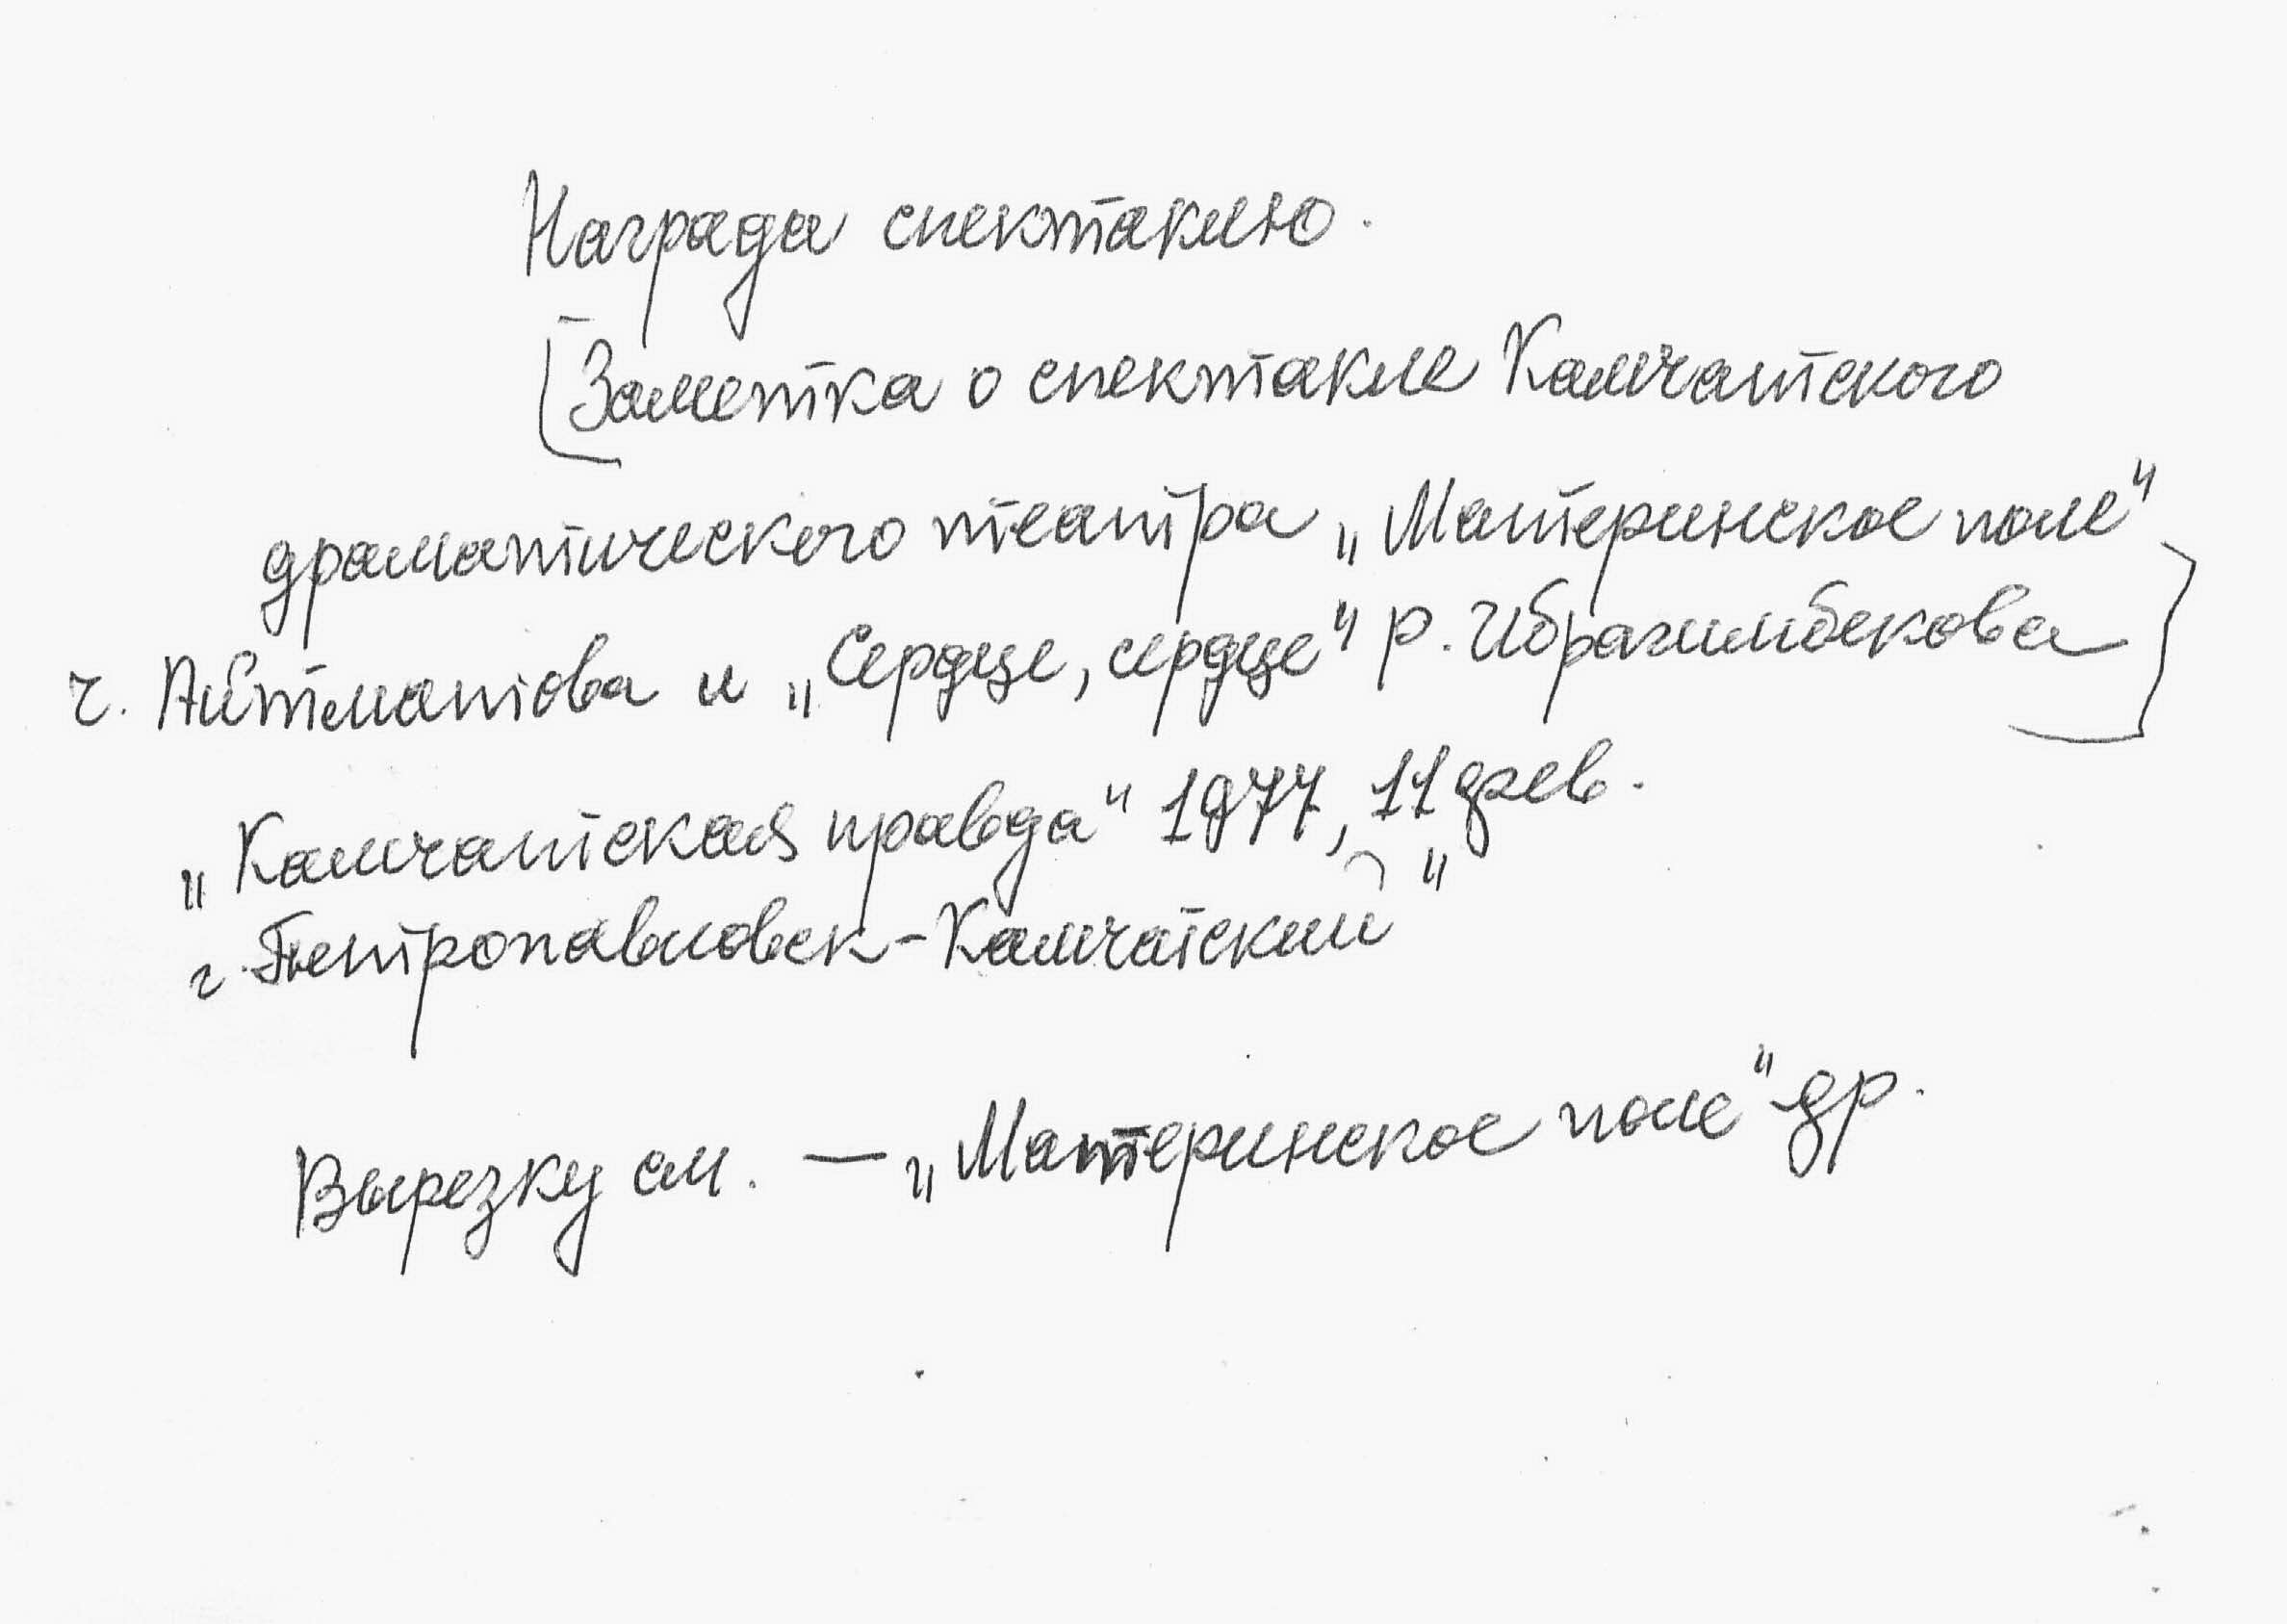 Награда спектаклю.
[Заметка о спектакле Камчатского
драматического театра „Материнское поле"
Ч. Айтматова и „Сердце, сердце" Р. Ибрагимбекова]
„Камчатская правда" 1977, 11 фев.
г. Петропавловск-Камчатский"
Вырезку см. — „Материнское поле" др.